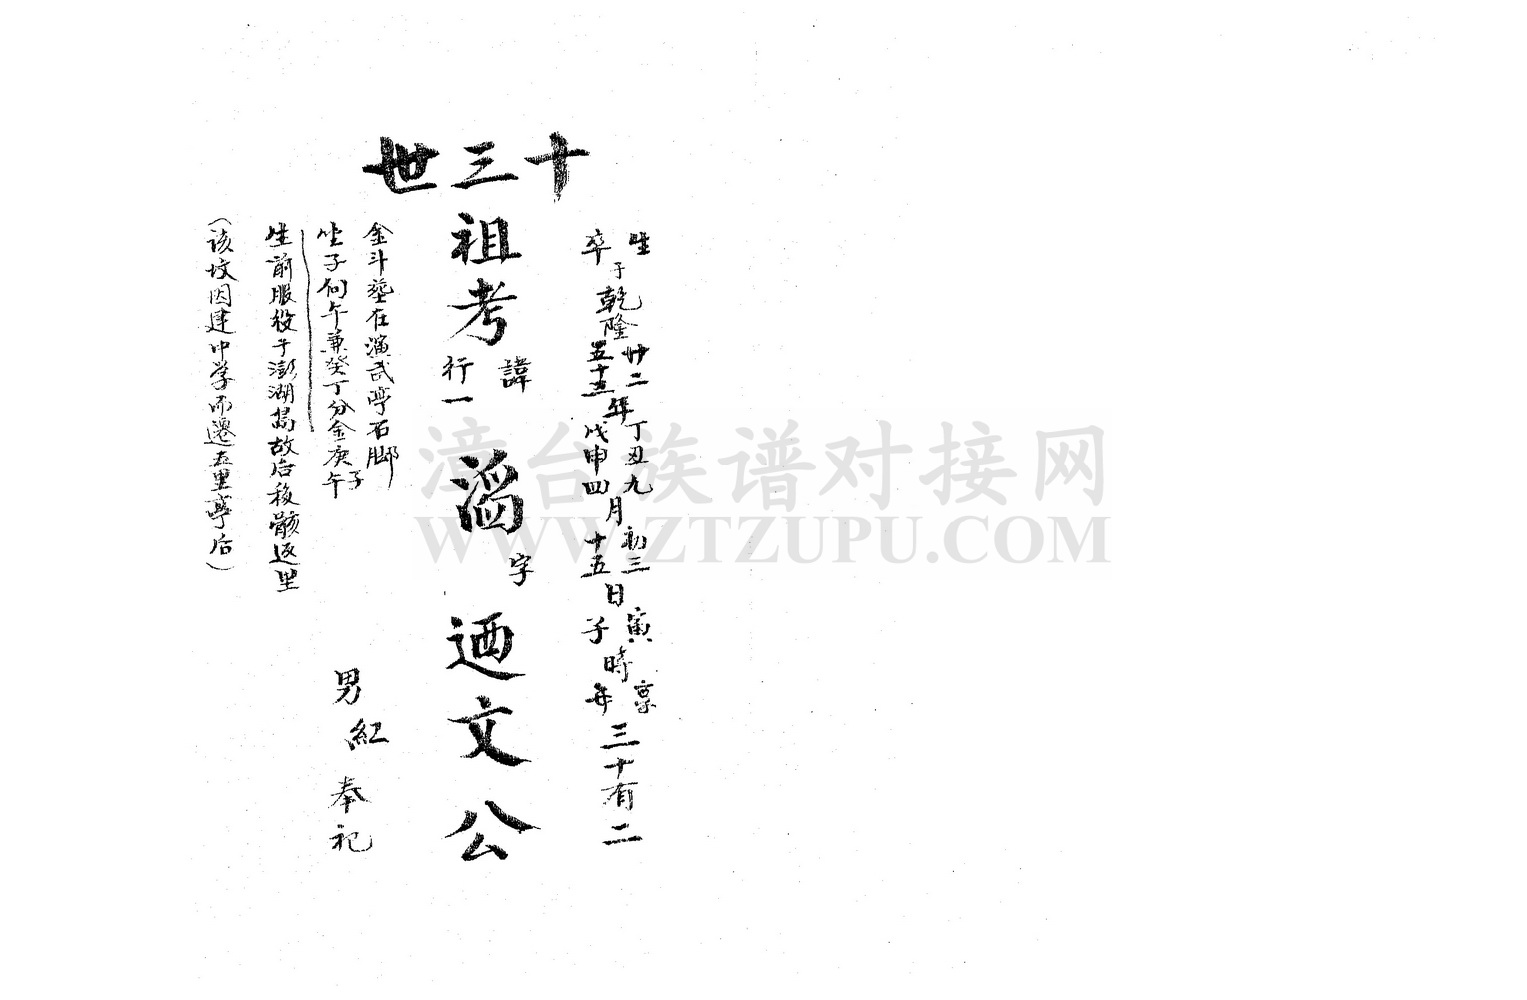 十三世
生 廿二 丁丑九 初三 寅 享
于乾隆 年 月 日 時 三十有二
卒 五十三 戊申四 十五 子 年
祖考 諱 滔 字 迺文公
行一
金斗塟在演武亭石脚
坐子向午兼癸丁分金庚子午
生前服役于澎湖 故后移骸返里
(该坟因建中学而遷五里亭后)
男 紅 奉祀
漳台族谱对接网
WWW.ZTZUPU.COM